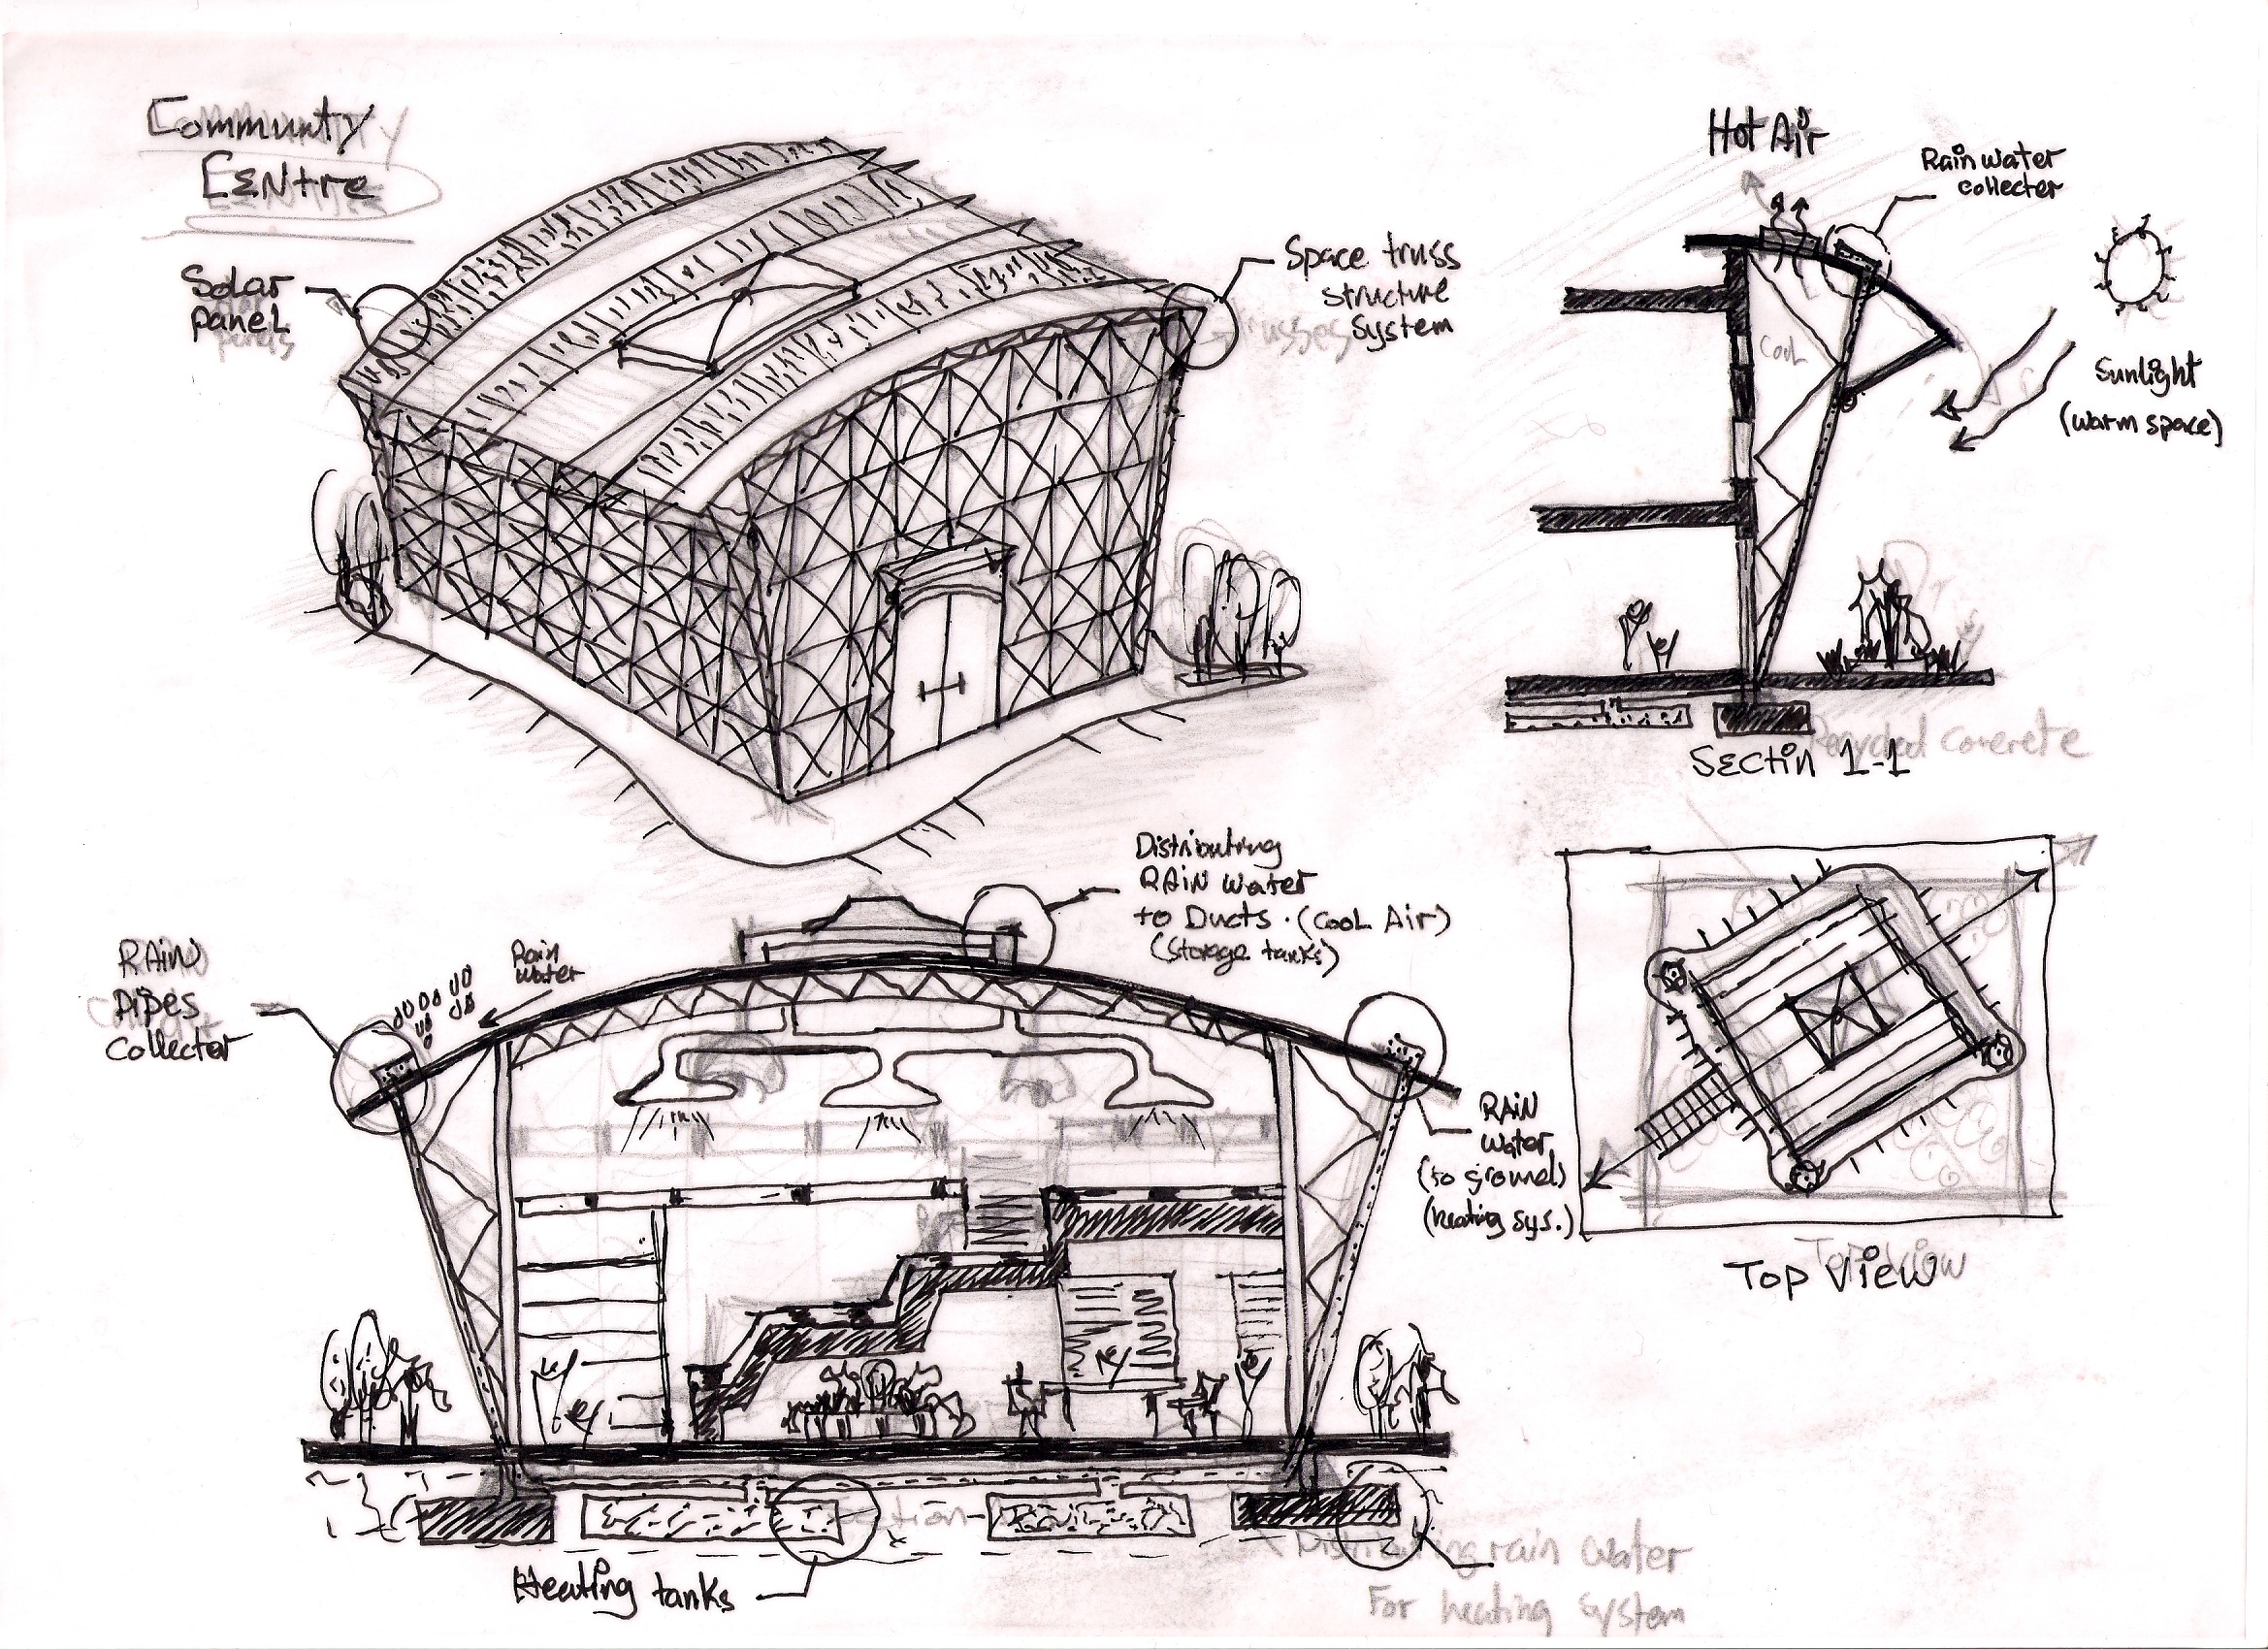 Communty
CENtre
Solar
panEL
Space truss
structure
System
Hot Air
Rain water
collecter
CooL
Sunlight
(warm space)
Recycled concrete
SECtiN 1-1
Distributing
RAiN water
to Ducts. (CooL Air)
(storage tanks)
RAiN
pipes
collector
Rain
water
RAiN
water
(to ground)
(heating sys.)
Top View
Top View
Heating tanks
Distributing rain water
For heating system